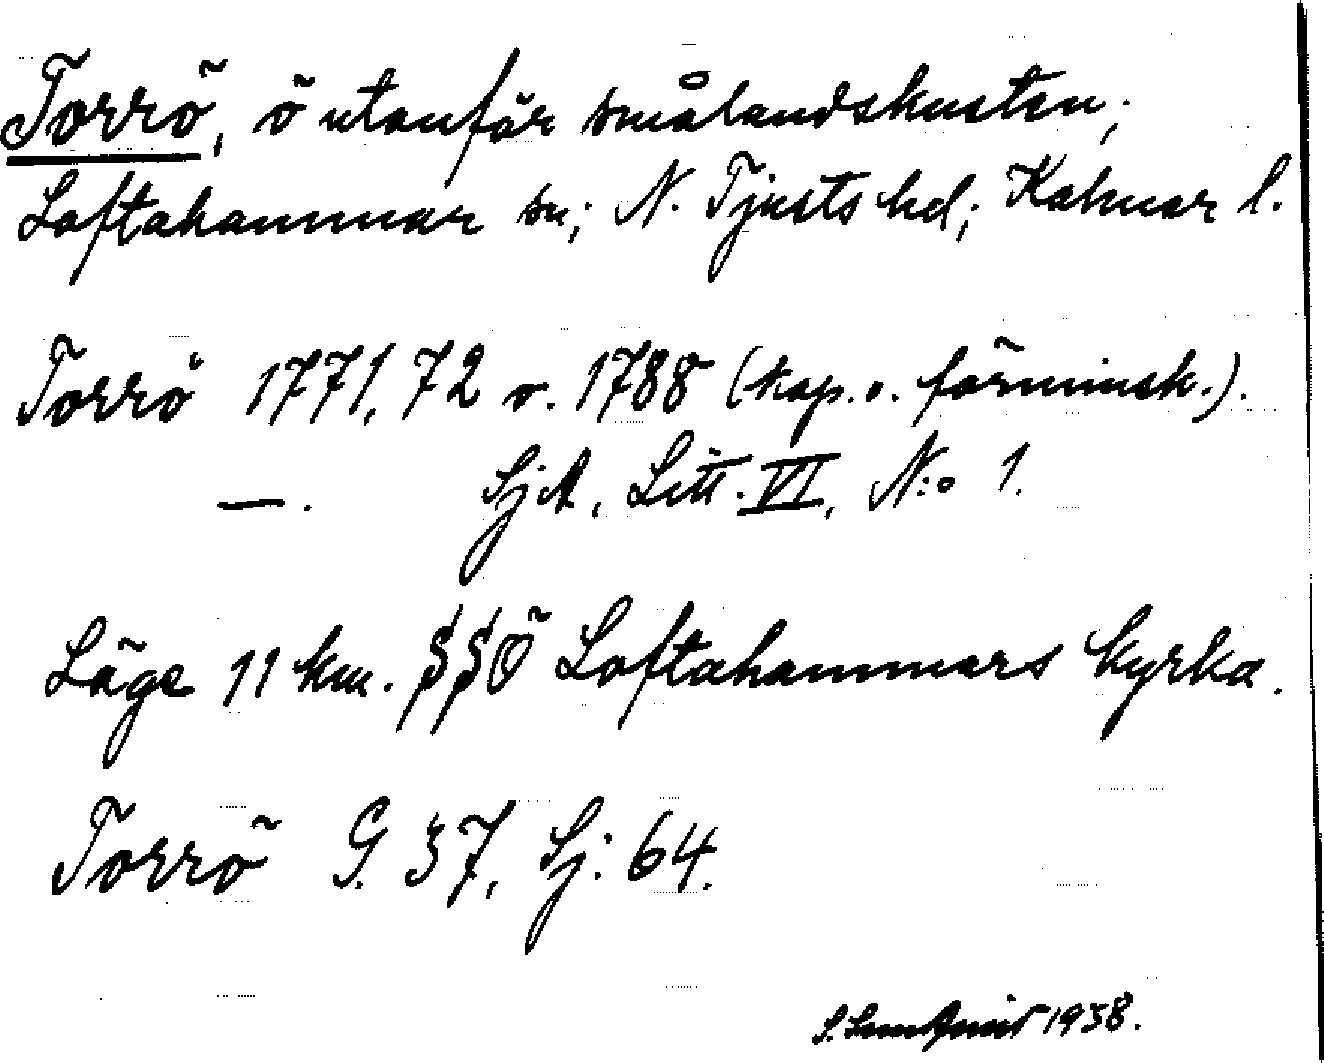 Torrö, ö utanför smålandskusten;
Loftahammar sn; N. Tjusts hd; Kalmar l.
Torrö 1771, 72 o. 1788 (kop. o. förminsk.).
—. SjA, Litt. VI, N:o 1.
Läge 11 km. SSÖ Loftahammars kyrka.
Torrö G. 37, Sj: 64.
1938.